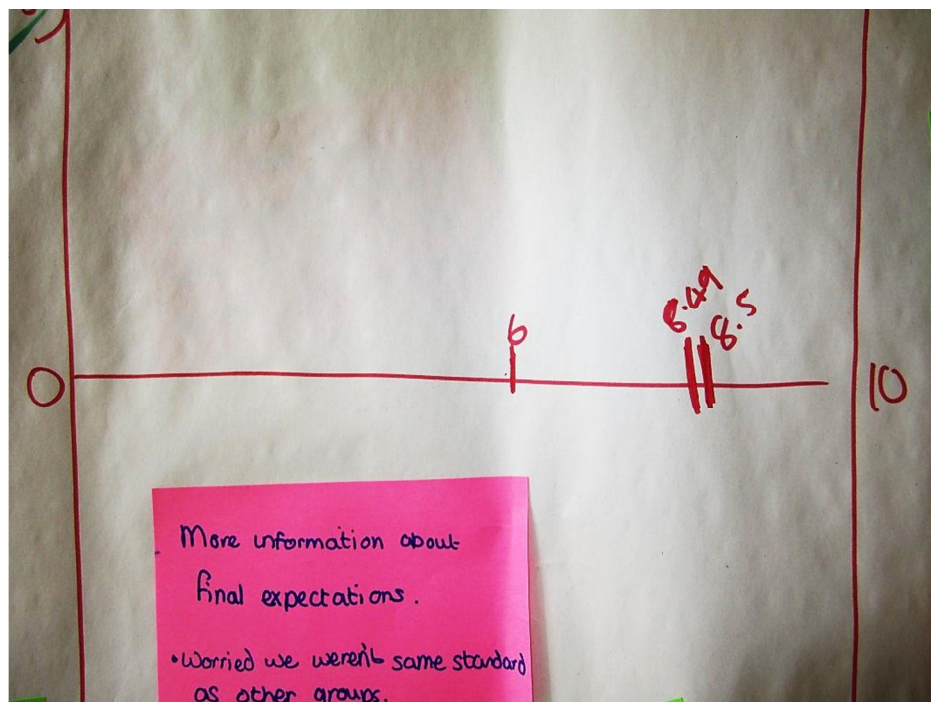 6
8.49
8.5
0
10
More information about
final expectations.
•Worried we weren't same standard
as other groups.